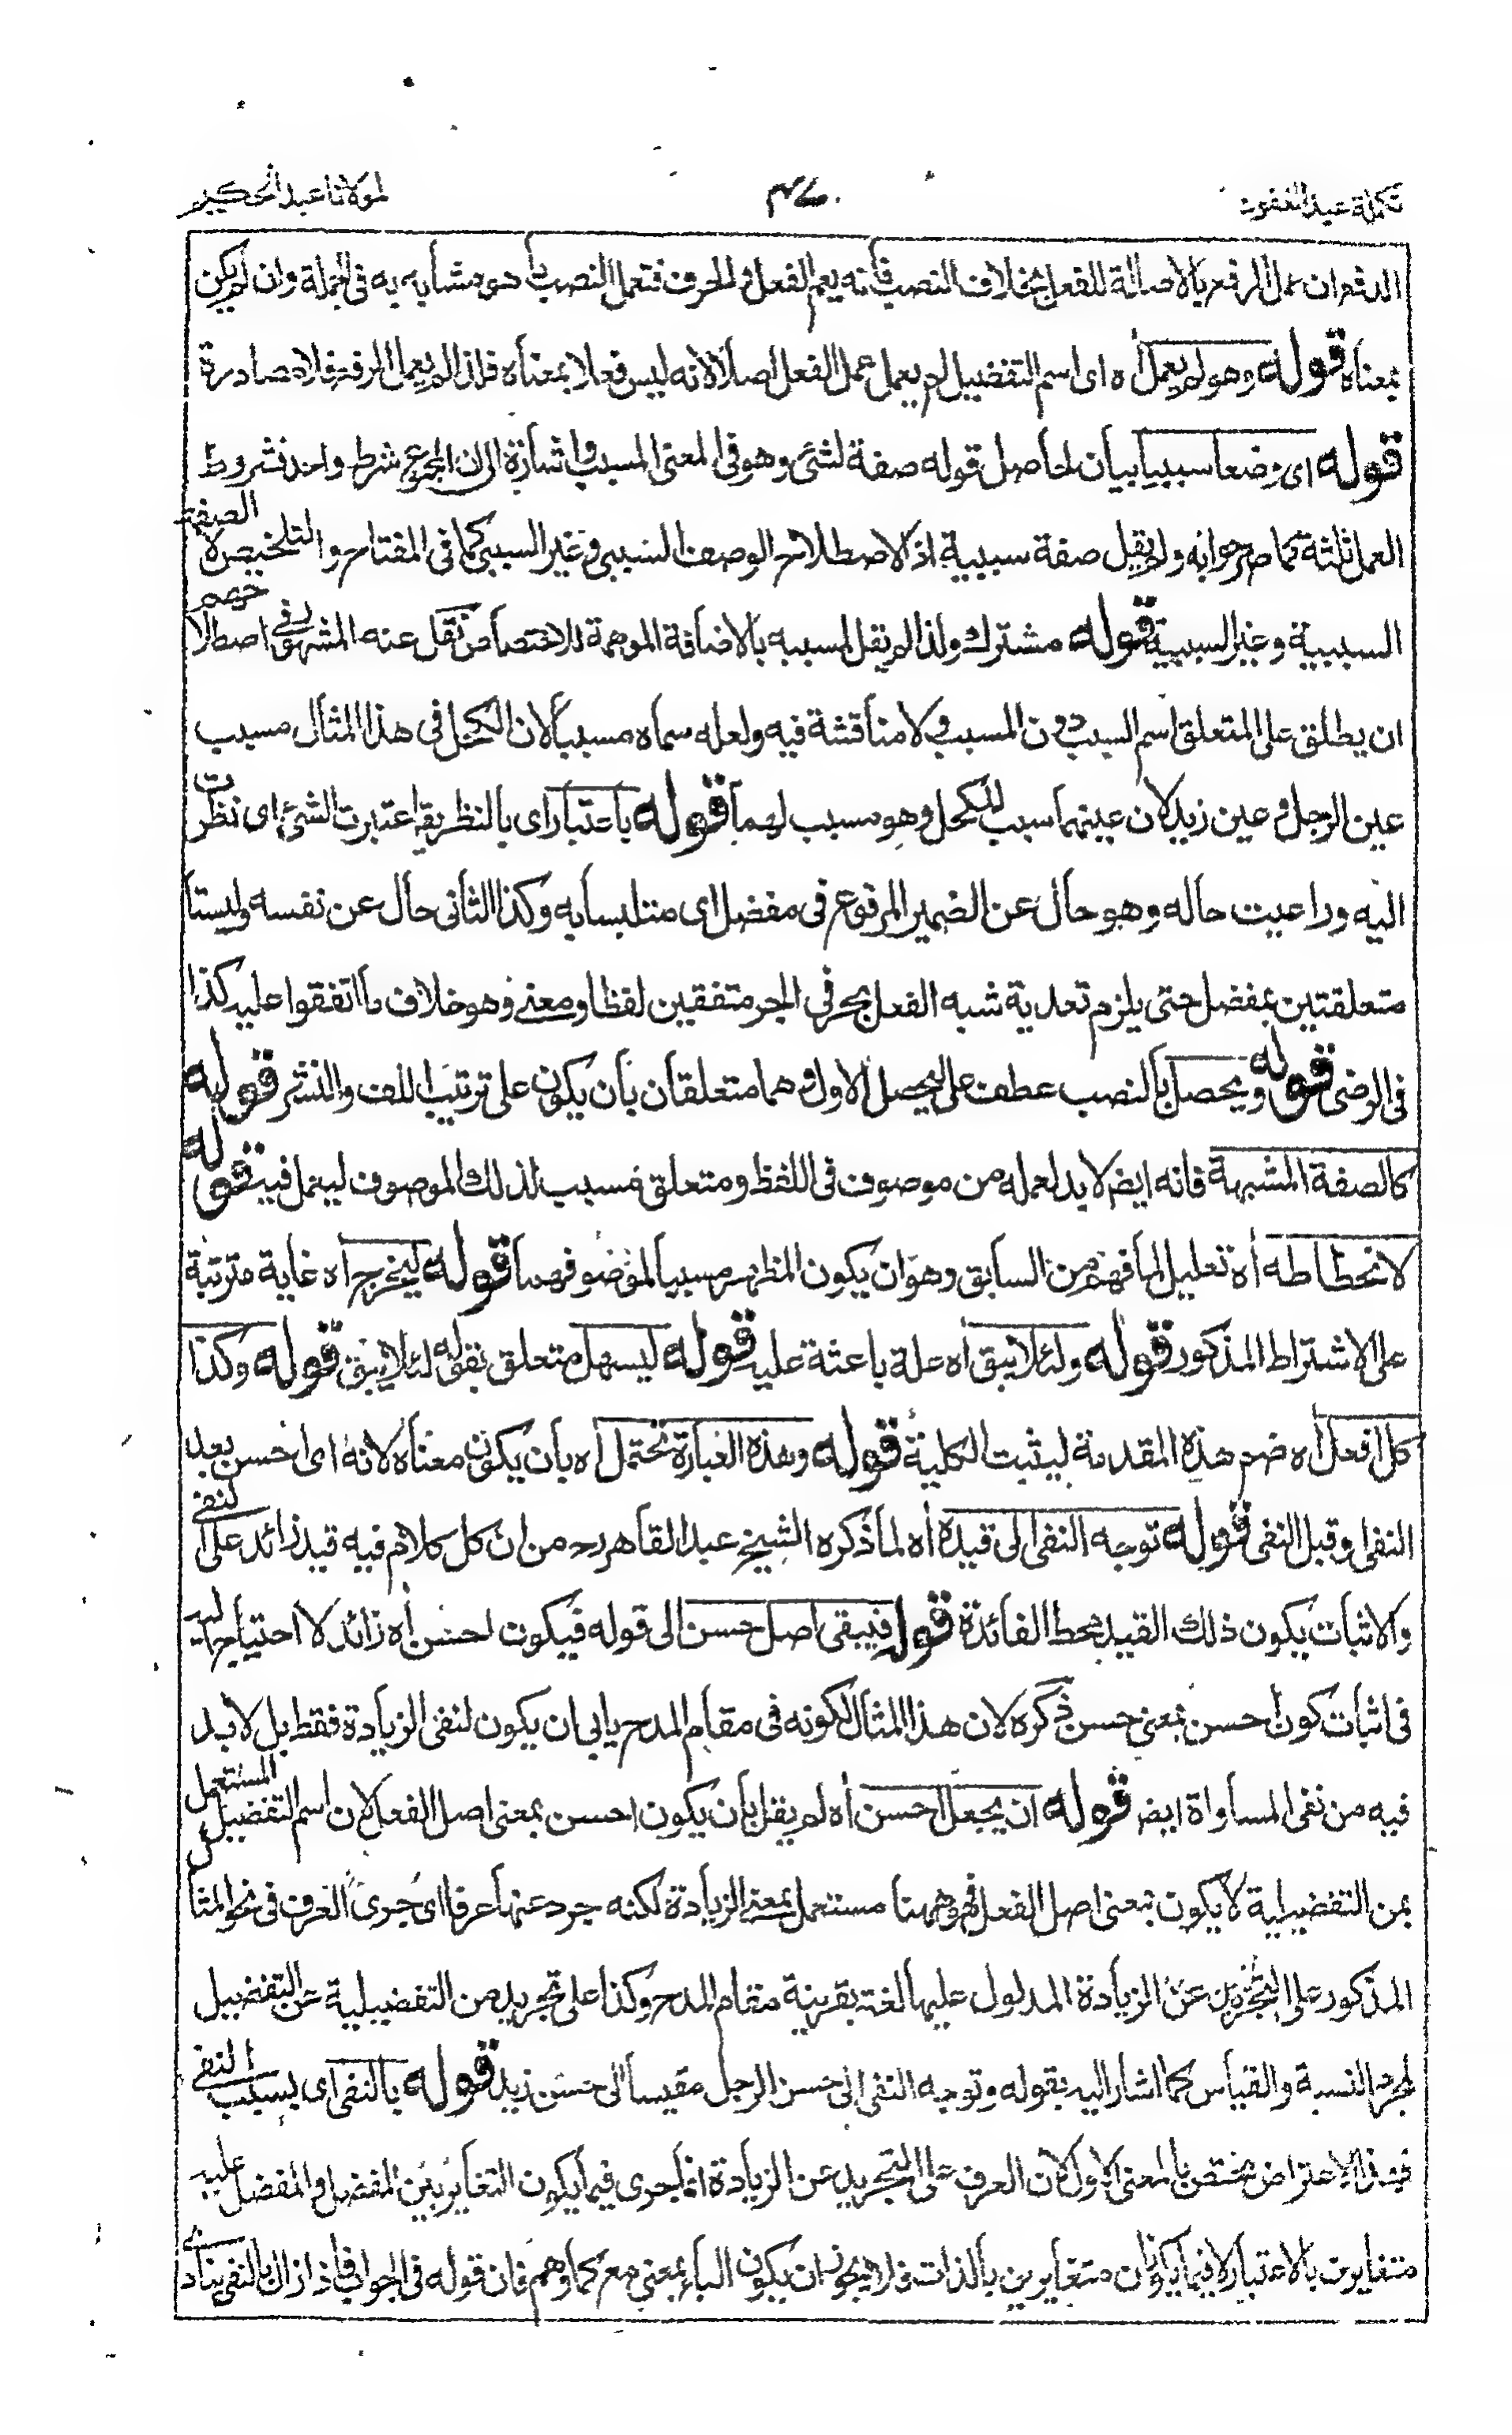 تكملة عبد الغفور
٤٧
لمولانا عبد الحكيم
الرفع بالاصالة للفعل بخلاف النصب فانه يعم الفعل والحرف فتعمل النصب مشابه به فى الجملة وان لم يكن
بمعناه قوله وهو لم يعمل اه اى اسم التفضيل لم يعمل عمل الفعل اصلا لانه ليس فعلا بمعناه فلذا لم يعمل الرفع فلا مصادرة
قوله اى وضعا سببيا بيان لحاصل قوله صفة لشئ وهو فى المعنى المسبب واشارة الى ان المجموع شرط واحد فشروط
العمل ثلثة كما صرحوا به ولم يقل صفة سببية اذ الاصطلاح الوصف السببى وغير السببى كما فى المفتاح والتلخيص لا الصفة
السببية وغير السببية قوله مشترك ولذا لم يقل لمسببه بالاضافة الموهمة للاختصاص نقل عنه المشهور فى اصطلاحهم
ان يطلق على المتعلق اسم السبب دون المسبب ولا مناقشة فيه ولعله سماه مسببا لان الكحل فى هذا المثال مسبب
عين الرجل وعين زيد لان عينهما سبب للكحل وهو مسبب لهما قوله باعتبار اى بالنظر يقم اعتبرت الشئ اى نظرت
اليه وراعيت حاله وهو حال عن الضمير المرفوع فى مفضل اى متلبسا به وكذا الثانى حال عن نفسه وليستا
متعلقتين بمفضل حتى يلزم تعدية شبه الفعل بحرفى الجر متفقين لفظا ومعنى وهو خلاف ما اتفقوا عليه كذا
فى الرضى قوله ويحصل بالنصب عطف على يحصل الاول وهما متعلقان بان يكون على ترتيب اللف والنشر قوله
كالصفة المشبهة فانه ايضا لا بد لعمله من موصوف فى اللفظ ومتعلق مسبب لذلك الموصوف ليعمل فيه قوله
لانحطاطه اه تعليل لما فهم من السابق وهو ان يكون المظهر مسببا لموصوفهما قوله ليخرج اه غاية مترتبة
على الاشتراط المذكور قوله ولئلا يبقى اه علة باعثة عليه قوله ليسهل متعلق بقوله لئلا يبقى قوله وكذا
كل افعل اه ضم هذه المقدمة ليثبت الكلية قوله وهذه العبارة تحتمل اه بان يكون معناه لانه اى احسن بعد
النفى او قبل النفى قوله توجه النفى الى قيده اه لما ذكره الشيخ عبد القاهر رح من ان كل كلام فيه قيد زائد على النفى
والاثبات يكون ذلك القيد محط الفائدة قوله فيبقى اصل حسن الى قوله فيكون احسن اه زائد لا احتياج اليه
فى اثبات كون احسن بمعنى حسن ذكره لان هذا المثال لكونه فى مقام المدح يابى ان يكون لنفى الزيادة فقط بل لا بد
فيه من نفى المساواة ايضا قوله ان يجعل احسن اه لم يقل بان يكون احسن بمعنى اصل الفعل لان اسم التفضيل المستعمل
بمن التفضيلية لا يكون بمعنى اصل الفعل فهو ههنا مستعمل بمعنى الزيادة لكنه جرد عنها عرفا اى جرى العرف فى نحو المثال
المذكور على التجريد عن الزيادة المدلول عليها لغة بقرينة مقام المدح وكذا على تجريد من التفضيلية عن التفضيل
لمجرد النسبة والقياس كما اشار اليه بقوله وتوجه النفى الى حسن الرجل مقيسا الى حسن زيد قوله بالنفى اى بسبب النفى
فهذا الاعتراض مختص بالمعنى الاول لان العرف على التجريد عن الزيادة انما يجرى فيما يكون التغاير بين المفضل والمفضل عليه
متغايرين بالاعتبار لا فيما يكونان متغايرين بالذات يجوز ان يكون الباء بمعنى مع كما وهم فان قوله فى الجواب فاذا زال بالنفى ينادى